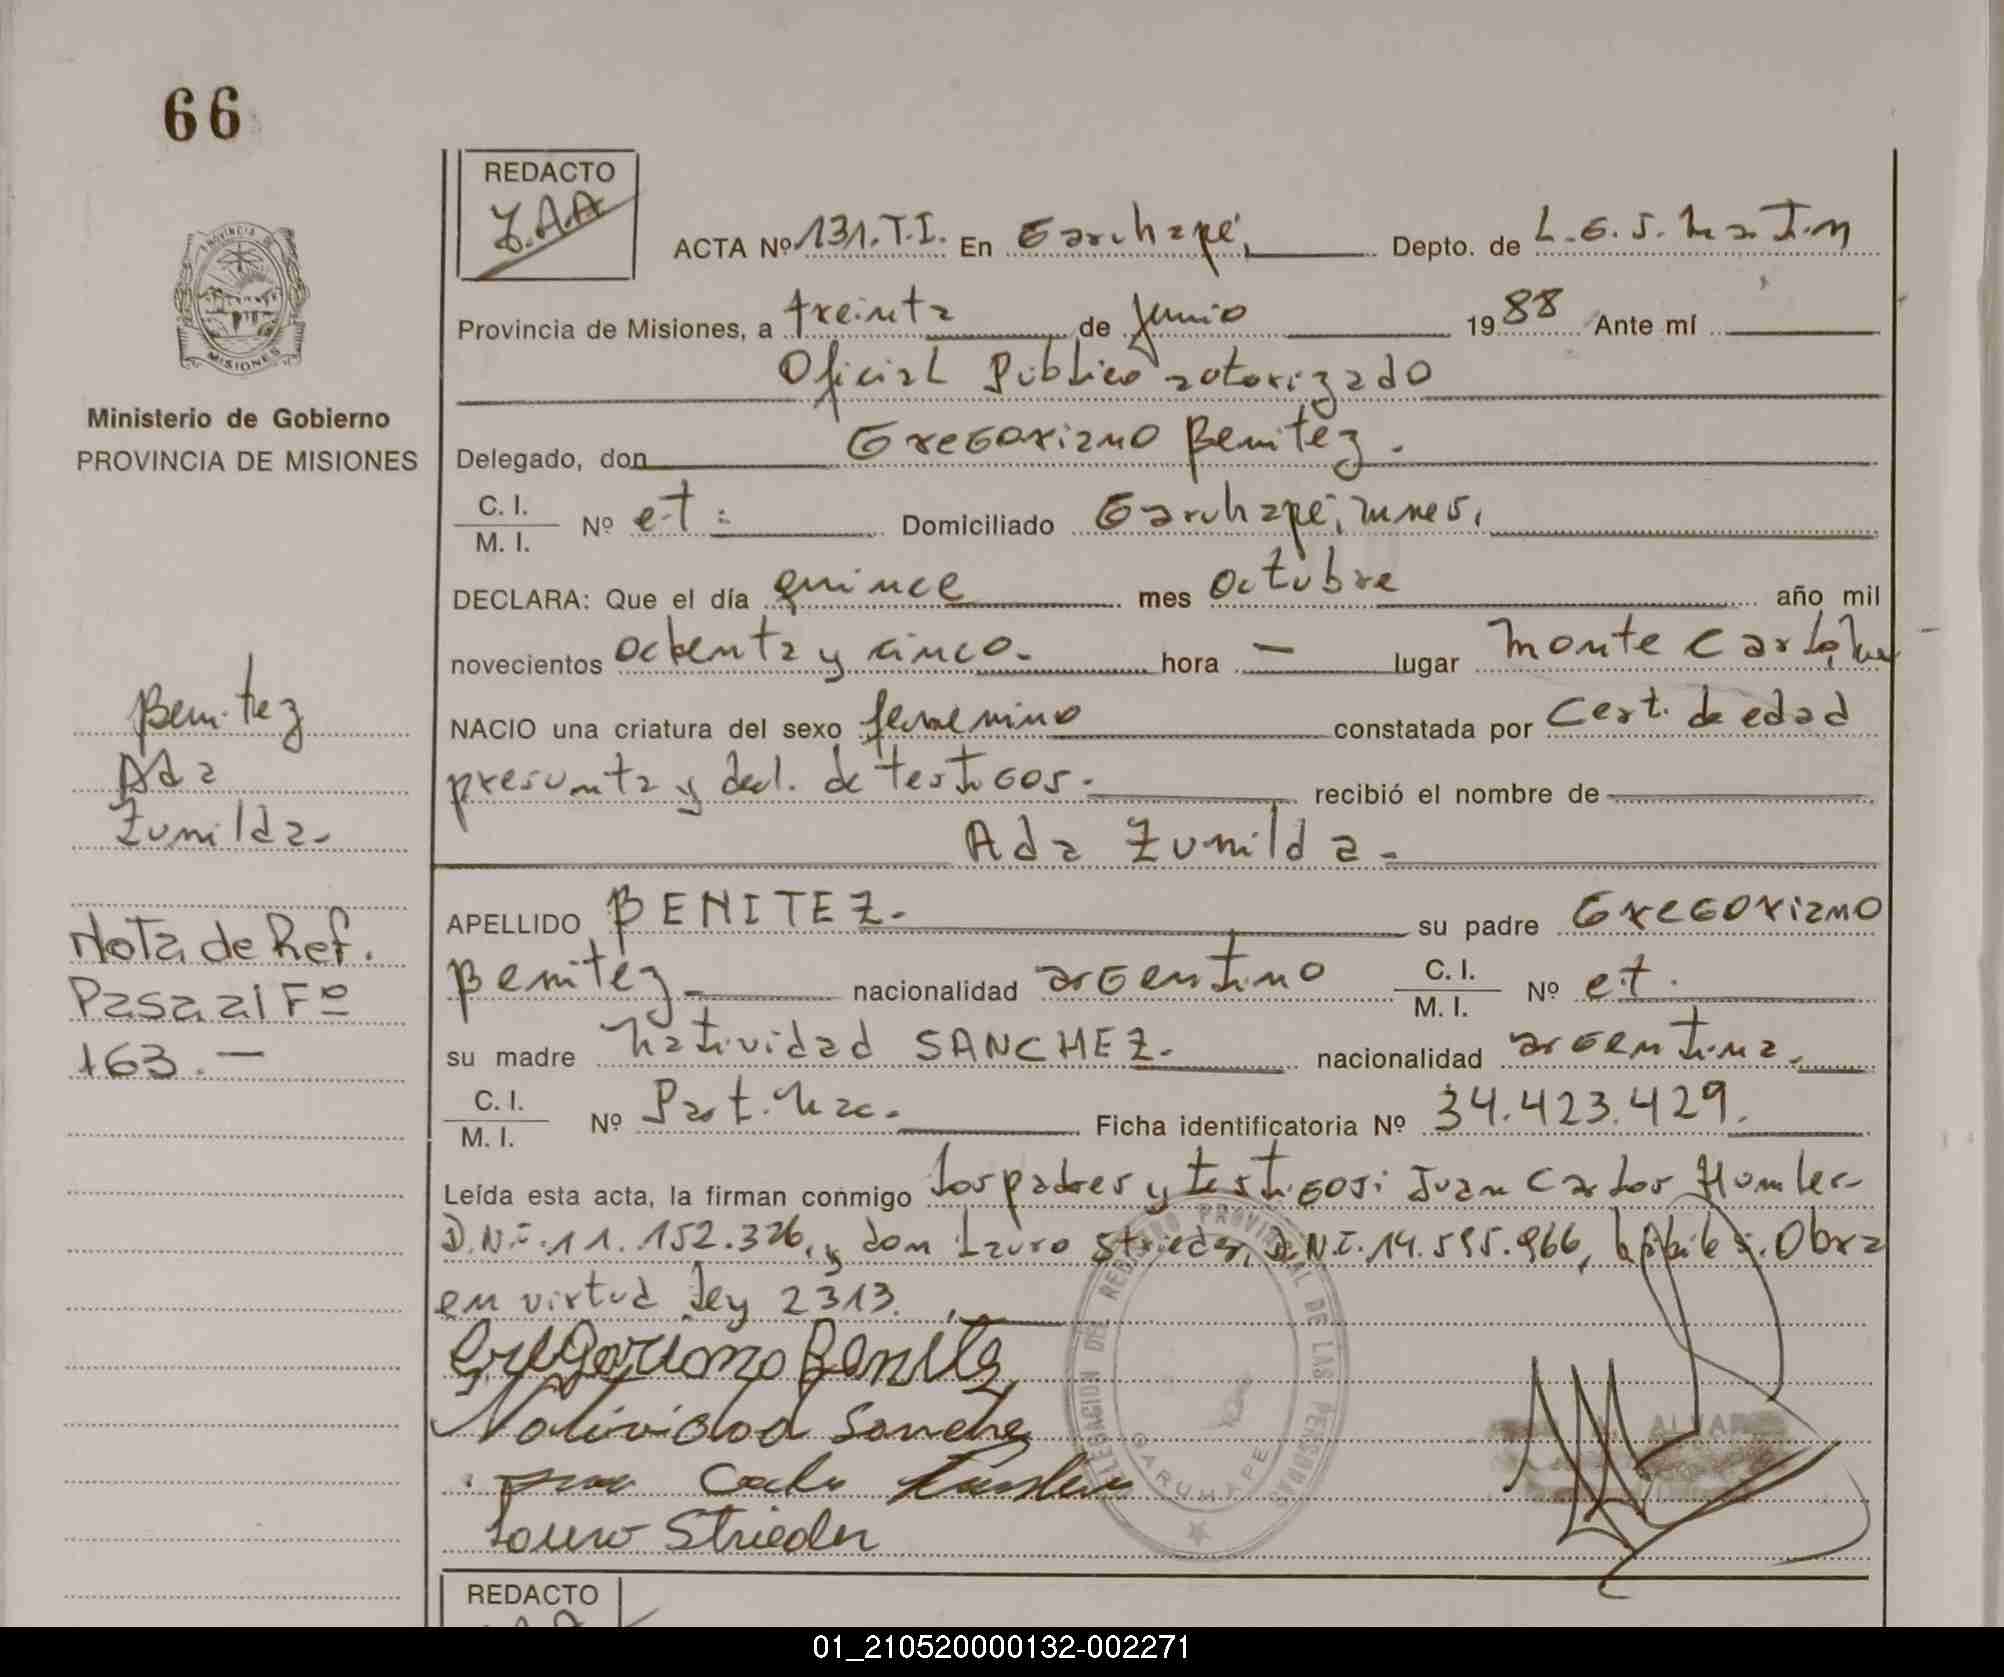 66
REDACTO
Z.A.A
ACTA Nº 131.T.I. En Garuhapé, Depto. de L.G.S. Martin
PROVINCIA DE MISIONES
Provincia de Misiones, a treinta de Junio 1988 Ante mí
Oficial Público autorizado
Ministerio de Gobierno
PROVINCIA DE MISIONES
Delegado, don Gregoriano Benitez.
C. I.
M. I. Nº e.t: Domiciliado Garuhapé, mnes.
DECLARA: Que el día quince mes octubre año mil
novecientos ochenta y cinco. hora — lugar Monte Carlo,
NACIO una criatura del sexo femenino constatada por Cert. de edad
presunta y decl. de testigos. recibió el nombre de
Ada Zunilda.
Benitez
Ada
Zunilda.
APELLIDO BENITEZ. su padre Gregoriano
Benitez nacionalidad argentino C. I.
M. I. Nº e.t.
su madre Natividad SANCHEZ. nacionalidad argentina.
C. I.
M. I. Nº Part. Nac. Ficha identificatoria Nº 34.423.429.
Nota de Ref.
Pasa al Fº
163.—
Leída esta acta, la firman conmigo los padres y testigos: Juan Carlos
D.N.I. 11.152.326, y don Lauro Strieder, D.N.I. 14.595.966, hábiles. Obra
en virtud ley 2313.
Gregoriano Benitez
Natividad Sanchez
Lauro Strieder
DELEGACION DEL REGISTRO PROVINCIAL DE LAS PERSONAS
GARUHAPE
REDACTO
01_210520000132-002271